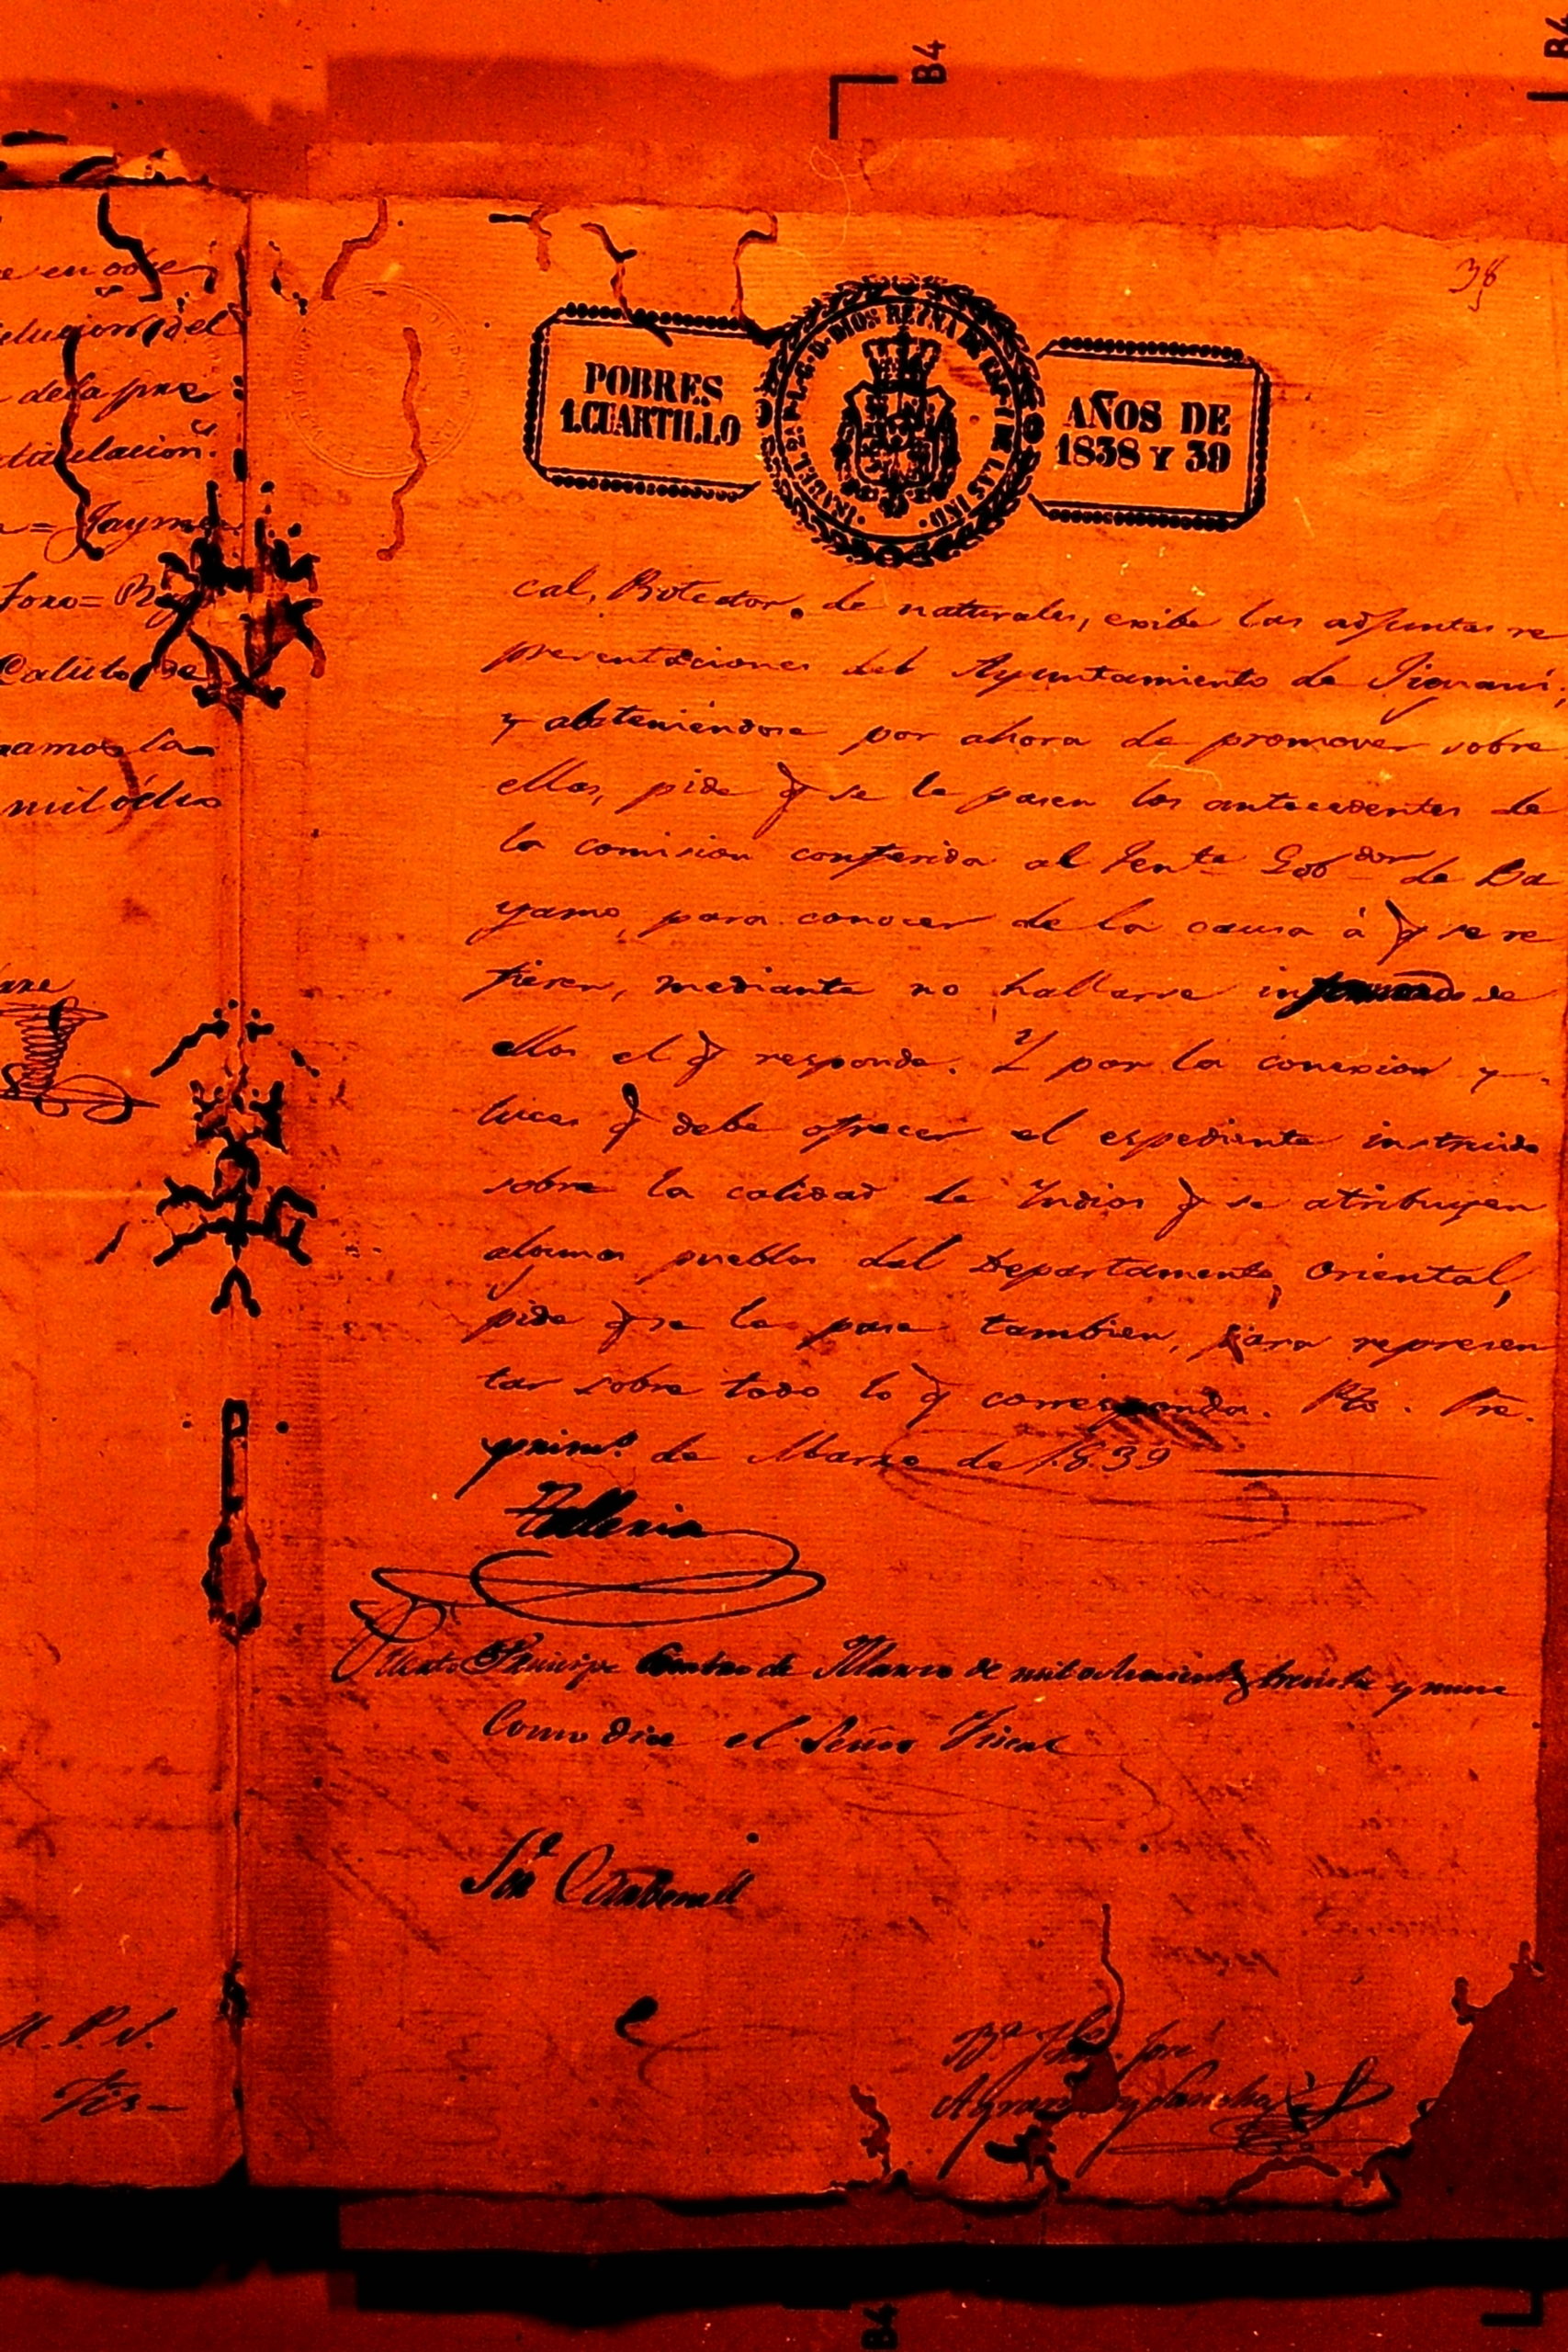 B4
B4
38
POBRES
1.CUARTILLO
ISABEL 2ª P. L. G. D. DIOS REYNA DE ESPª Y DE LAS IND.
AÑOS DE
1838 Y 39
cal, Protector de naturales, exibe las adjuntas re
presentaciones del Ayuntamiento de Jiguaní,
y absteniéndose por ahora de promover sobre
ellas, pide q se le pasen los antecedentes de
la comision conferida al Tente Gobdor de Ba
yamo, para conocer de la causa á q se re
fieren, mediante no hallarse informado de
ellos el q responde. Y por la conexion y
luces q debe ofrecer el espediente instruido
sobre la calidad de Indios q se atribuyen
algunos pueblos del Departamento Oriental,
pide q se le pase tambien, para represen
tar sobre todo lo q corresponda. Pto. Pre.
primº de Marzo de 1839
Puerto Principe de Marzo de mil ochocientos treinta y nueve
Como dice el Señor Fiscal
José
B4
e en
elucion del
de la pre
= Jayme
Toxo=
Calisto de
amos la
mil ocho